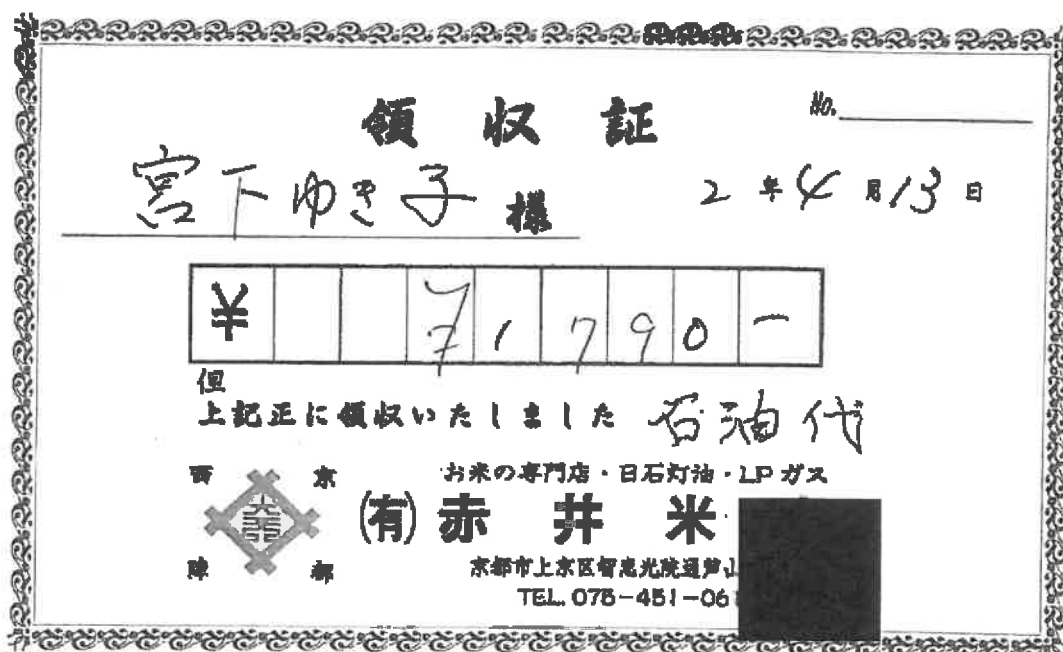 領収証
No.
宮下ゆき子 様
2年4月13日
¥ 71790-
但
上記正に領収いたしました 石油代
お米の専門店・日石灯油・LPガス
西陣 京都
(有)赤井米
京都市上京区智恵光院通芦山
TEL. 075-451-06